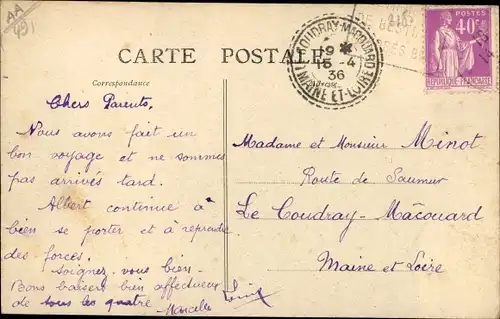 AA
491
CARTE POSTALE
Correspondance
COUDRAY-MACOUARD
19 *
15 -4
36
MAINE ET-LOIRE
POSTES
40c
RÉPUBLIQUE FRANÇAISE
Chers Parents,
Nous avons fait un
bon voyage et ne sommes
pas arrivés tard.
Albert continue à
bien se porter et à reprendre
des forces.
Soignez vous bien.
Bons baisers bien affectueux
de tous les quatre
Marcelle
Madame et Monsieur Minot
Route de Saumur
Le Coudray-Mâcouard
Maine et Loire